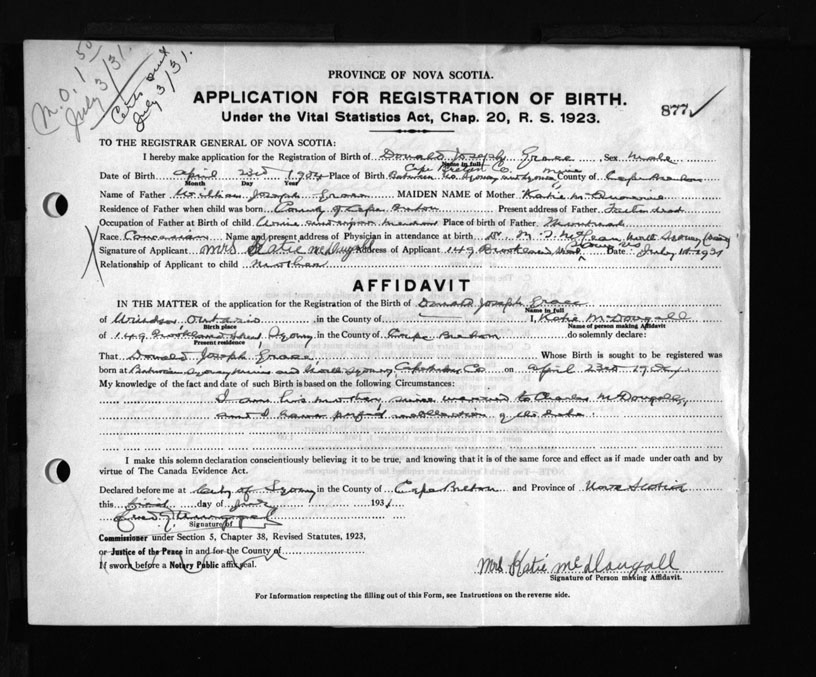 M.O. 1.50
July 3/31.
Certs sent
July 3/31.
PROVINCE OF NOVA SCOTIA.
APPLICATION FOR REGISTRATION OF BIRTH.
877 ✓
Under the Vital Statistics Act, Chap. 20, R. S. 1923.
TO THE REGISTRAR GENERAL OF NOVA SCOTIA:
I hereby make application for the Registration of Birth of Donald Joseph Grace Sex Male
Name in full
Cape Breton Co.
Date of Birth April 23rd Place of Birth Between Sydney County of Cape Breton
Month Day Year
Name of Father William Joseph Grace MAIDEN NAME of Mother Katie
Residence of Father when child was born County of Cape Breton Present address of Father
Occupation of Father at Birth of child Place of birth of Father Montreal
Race Name and present address of Physician in attendance at birth Dr. North Sydney
Signature of Applicant Mrs Katie McDougall Address of Applicant 149 Brookland Date July 1st 1931
Relationship of Applicant to child Mother
AFFIDAVIT
IN THE MATTER of the application for the Registration of the Birth of Donald Joseph Grace
Name in full
of Windsor Ontario in the County of — I, Katie McDougall
Birth place Name of person making Affidavit
of 149 Brookland Street Sydney in the County of Cape Breton do solemnly declare:
Present residence
That Donald Joseph Grace Whose Birth is sought to be registered was
born at Between Sydney Mines and North Sydney, Cape Breton Co. on April 23rd
My knowledge of the fact and date of such Birth is based on the following Circumstances:
I am his mother, since married to Charles McDougall,
and I have perfect recollection of the date.
I make this solemn declaration conscientiously believing it to be true, and knowing that it is of the same force and effect as if made under oath and by
virtue of The Canada Evidence Act.
Declared before me at City of Sydney in the County of Cape Breton and Province of Nova Scotia
this first day of July 1931
Signature of
Commissioner under Section 5, Chapter 38, Revised Statutes, 1923,
or Justice of the Peace in and for the County of
If sworn before a Notary Public affix seal.
Mrs Katie McDougall
Signature of Person making Affidavit.
For Information respecting the filling out of this Form, see Instructions on the reverse side.